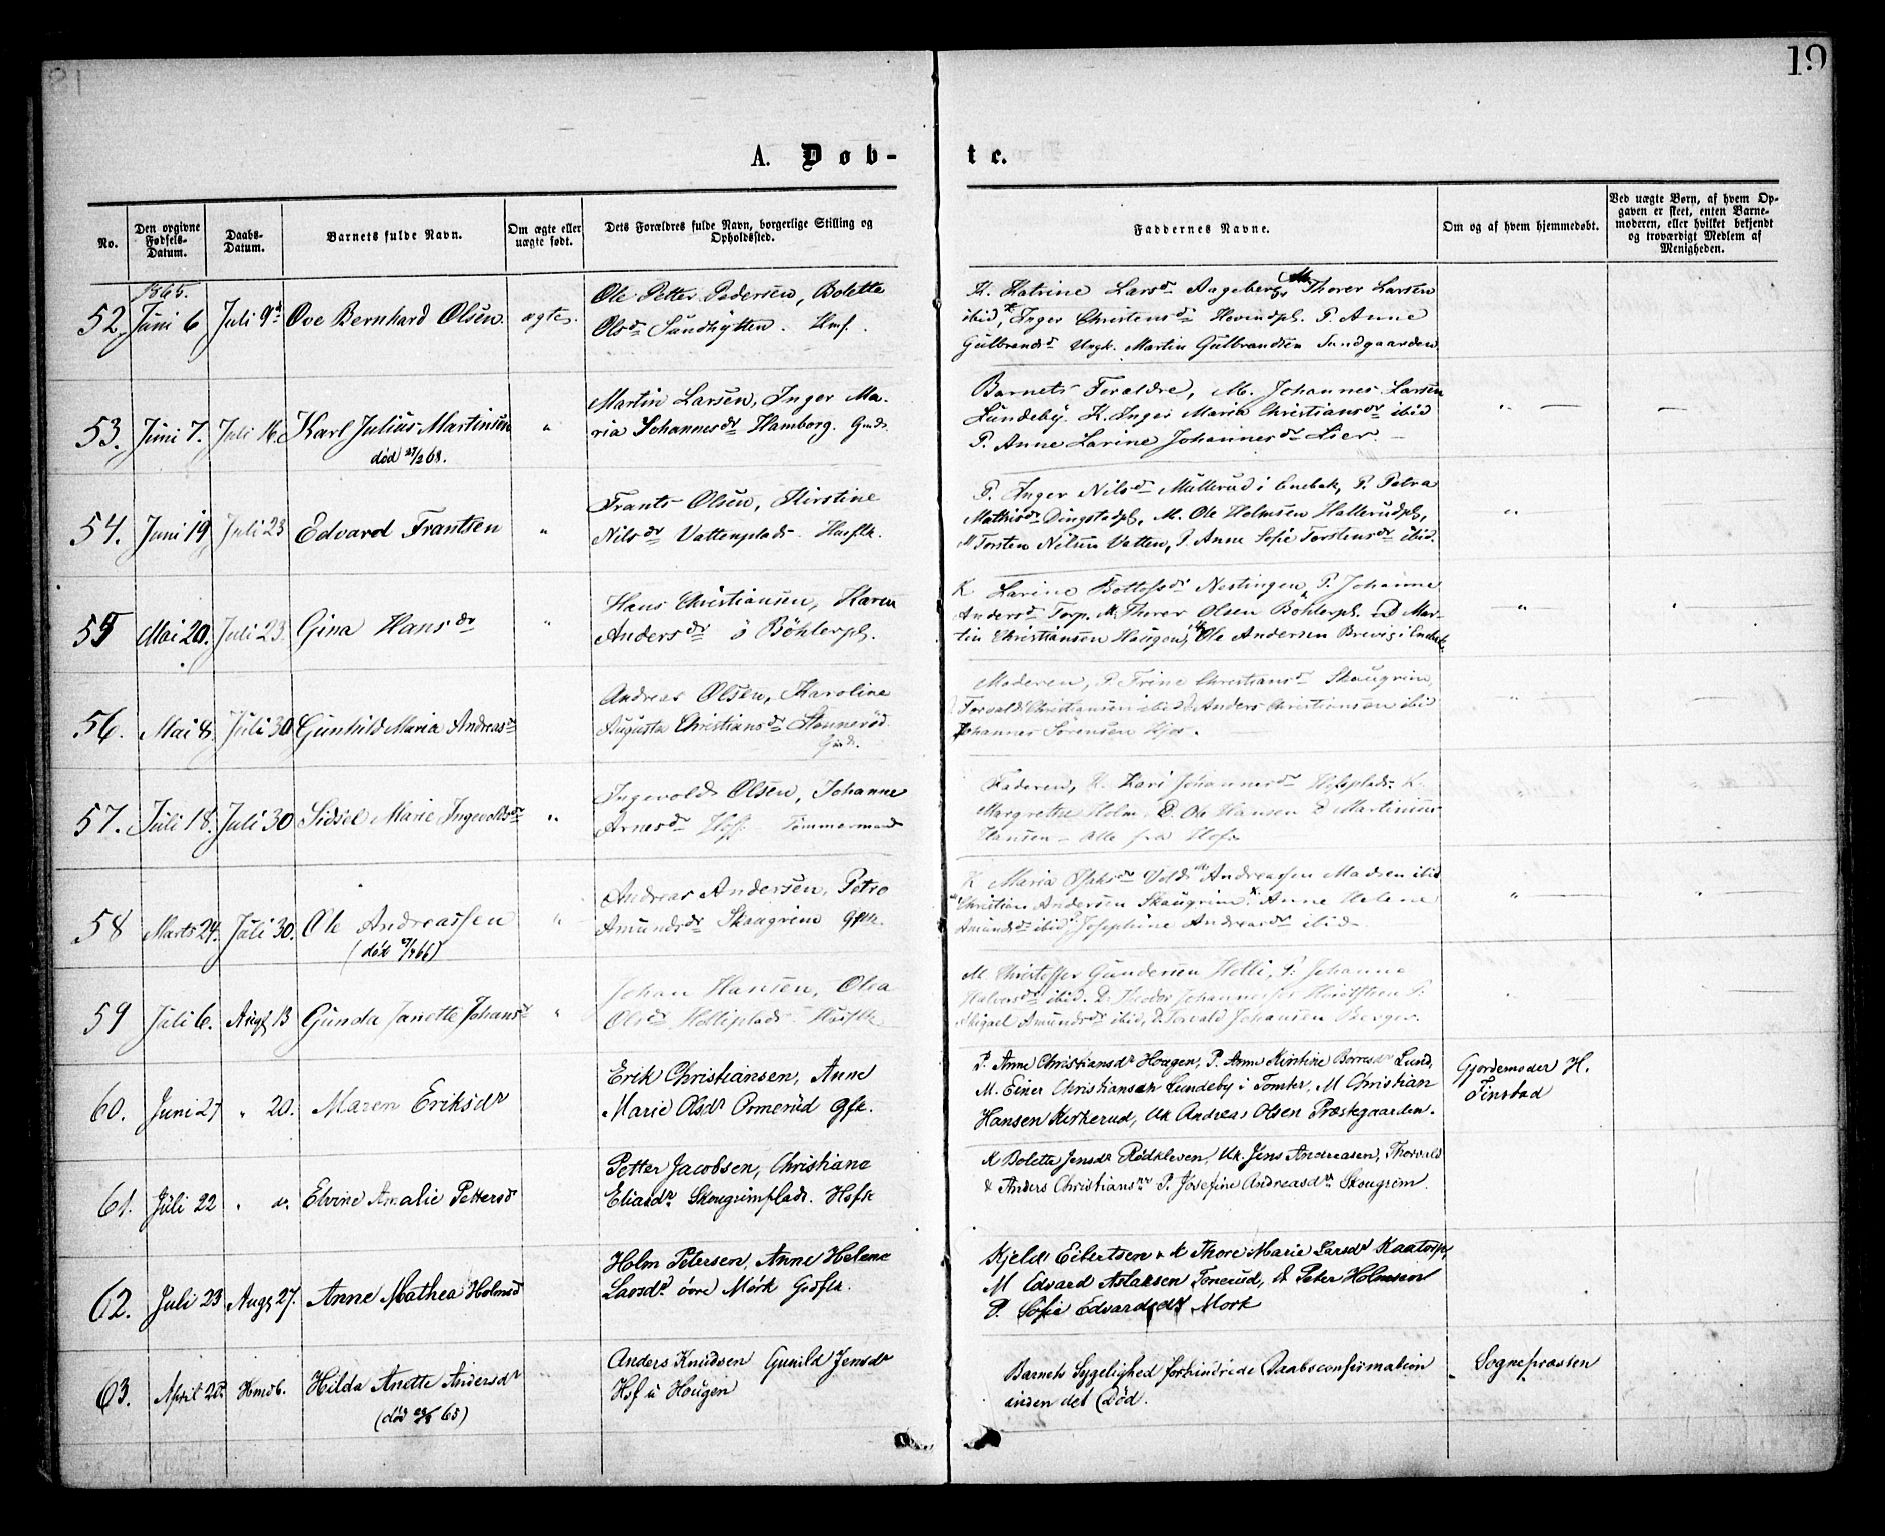 19
A. Døb-
te.
No.
Den opgivne Fødsels-Datum.
Daabs-Datum.
Barnets fulde Navn.
Om ægte eller uægte født.
Dets Forældres fulde Navn, borgerlige Stilling og Opholdssted.
Faddernes Navne.
Om og af hvem hjemmedøbt.
Ved uægte Børn, af hvem Opgaven er skeet, enten Barnemoderen, eller hvilket bekjendt og troværdigt Medlem af Menigheden.
1865.
52, Juni 6 Juli 9d Ove Bernhard Olsen. ægte.
Ole Petter Pedersen, Bolette
Olsdr Sundhytten. Hmf.
K. Katrine Larsdr Aageberg, M Thorer Larsen
ibid, K Inger Christensdr Hovindpl. P. Anne
Gulbrandsdr Ungk. Martin Gulbrandsen Sundgaarden
53. Juni 7. Juli 16. Karl Julius Martinsen "
død 27/2 68.
Martin Larsen, Inger Ma-
ria Johannesdr Hamborg. Gmds
Barnets Foraldre, M. Johannes Larsen
Lundeby. K. Inger Maria Christiansdr ibid
P. Anne Larine Johannesdr Lier. —
54. Juni 19, Juli 23 Edvard Frantsen "
Frants Olsen, Kirstine
Nilsdr Vattenplads. Husflk.
P. Inger Nilsdr Müllerud i Enebak, P. Petra
Mathisdr Dingstadpl, M. Ole Holmsen Hallerudpl,
M Torsten Nilsen Vatten, P. Anne Sofie Torstensdr ibid.
55 Mai 20. Juli 23. Gina Hansdr "
Hans Christiansen, Karen
Andersdr ö Böhlerpl.
K Larine Tollofsdr Nestingen, P. Johanne
Andersdr Torp. M. Thorer Olsen Böhlerpl. D Mar-
tin Christiansen Haugen, Ole Andersen Brevig i Enebak.
56. Mai 8. Juli 30 Gunhild Maria Andreasdr
Andreas Olsen, Karoline
Augusta Christiansdr Stennerød
Gmd.
Moderen, P. Trine Christiansdr Skaugrim,
Torvald Christiansen ibid, Anders Christiansen ibid
Johannes Sörensen Kjos.
57. Juli 18. Juli 30 Sidsel Marie Ingevoldsdr "
Ingevold Olsen, Johanne
Arnesdr Hof. Tömmermand
Faderen, K. Kari Johannesdr Hofsplads K.
Margrethe Holm. D. Ole Hansen D Martinius
Hansen — alle fra Hof.
58 Marts 24. Juli 30. Ole Andreassen "
(død 9/4 66)
Andreas Andersen, Petro
Amundsdr Skaugrim Gflk.
K Maria Andreassen Madsen ibid
Christian Andersen Skaugrim. K Anne Helene
Amundsdr ibid, Josephine Andreasdr ibid.
59 Juli 6. Augt 13 Gunda Janette Johansdr "
Johan Hansen, Olea
Olsdr Helliplads Husflk
M. Christoffer Gundersen Helli, P. Johanne
Halvorsdr ibid. D. Theodor Johannessen P.
Abigael Amundsdr ibid, D. Torvald Johansen Berger.
60. Juni 27 " 20. Maren Eriksdr
Erik Christiansen, Anne
Marie Olsdr Ormerud Gfk.
P. Anne Christiansdr Hougen, P. Anne Kirstine Borresdr Lund,
M. Einer Christiansen Lundeby i Tomter, M Christian
Hansen Kirkerud, Uk Andreas Olsen Præstegaarden.
Gjordemoder H.
Finstad
61. Juli 22 " do. Elvine Amalie Pettersdr
Petter Jacobsen, Christiane
Eliasdr Skougrimplads. Hsfk
K Bolette Jensdr Rødkleven, Uk. Jens Andreasen, Thorvald
& Anders Christianss. P. Josefine Andreasdr Skougrim.
62. Juli 23 Augt 27. Anne Mathea Holmsd
Holm Petersen, Anne Helene
Larsdr övre Mørk Grdflk.
Kjeld Eibertsen & K Thore Marie Larsdr Kaatorp,
M Edvard Aslaksen Tonerud, Peter Holmsen
P. Sofie Edvardsdr Mørk
63. April 20. Hmd 6. Hilda Anette Andersdr
(død 23/5 65)
Anders Knudsen Gunild Jensdr
Hsf u Hougen
Barnets Sygelighed forhindrede Daabsconfirmation
inden det Død.
Sognepræsten